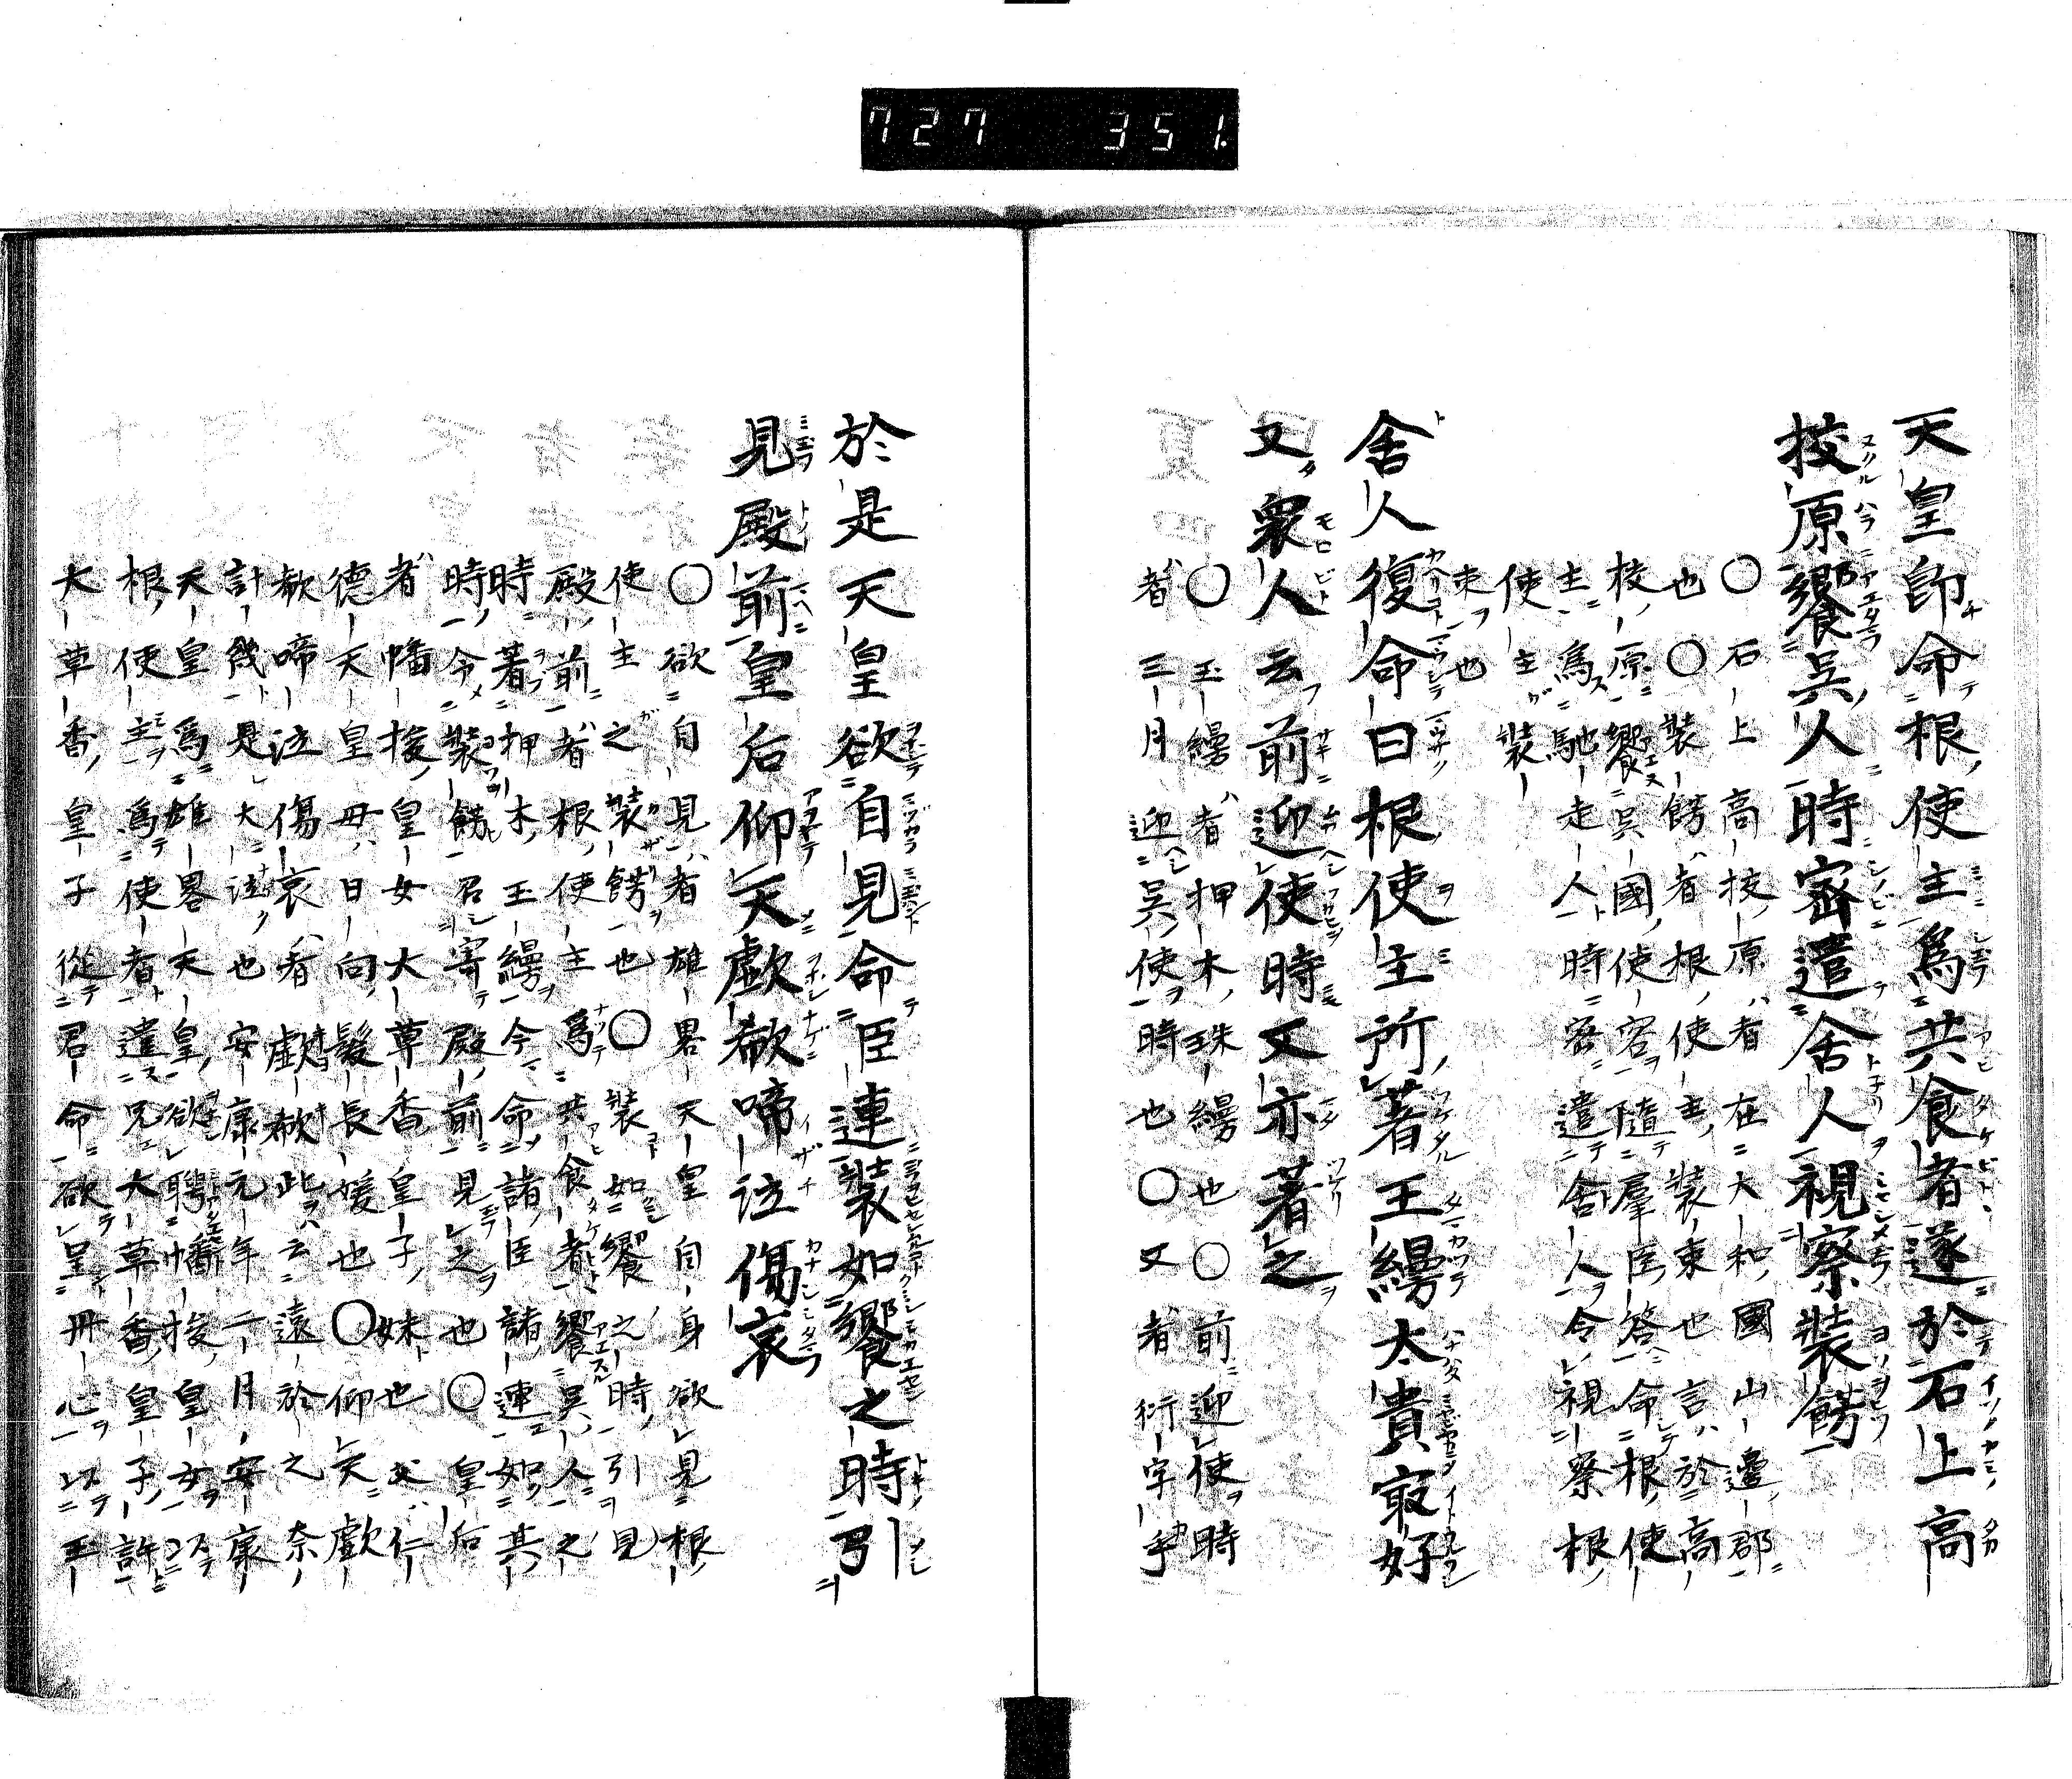 727 351.
天皇即命根使主爲共食者遂於石上高
抜原饗吳人時密遣舍人視察裝餝
○石上高抜原者在大和國山邊郡
也○裝餝者根使主裝束也言於高
校原饗吳國使客隨羣臣答命根使
主爲馳走人時密遣舍人令視察根
使主裝
束也
舍人復命曰根使主所著王縵太貴寂好
又衆人云前迎使時又亦著之
○玉縵者押木珠縵也○前迎使時
者三月迎吳使時也○又者衍字乎
於是天皇欲自見命臣連裝如饗之時引
見殿前皇后仰天歔欷啼泣傷哀
○欲自見者雄畧天皇自身欲見根
使主之裝餝也○裝如饗之時引見
殿前者根使主爲共食者饗吳人之
時著押木玉縵今命諸臣諸連如其
時令裝餝召寄殿前見之也○皇后
者幡梭皇女大草香皇子妹也父仁
德天皇母日向髮長媛也○仰天歔
欷啼泣傷哀者歔欷此云遠於之奈
計幾是大泣也安康元年二月安康
天皇爲雄畧天皇欲聘幡梭皇女
根使主爲使者遣兄大草香皇子許
大草香皇子從君命欲呈丹心以玉